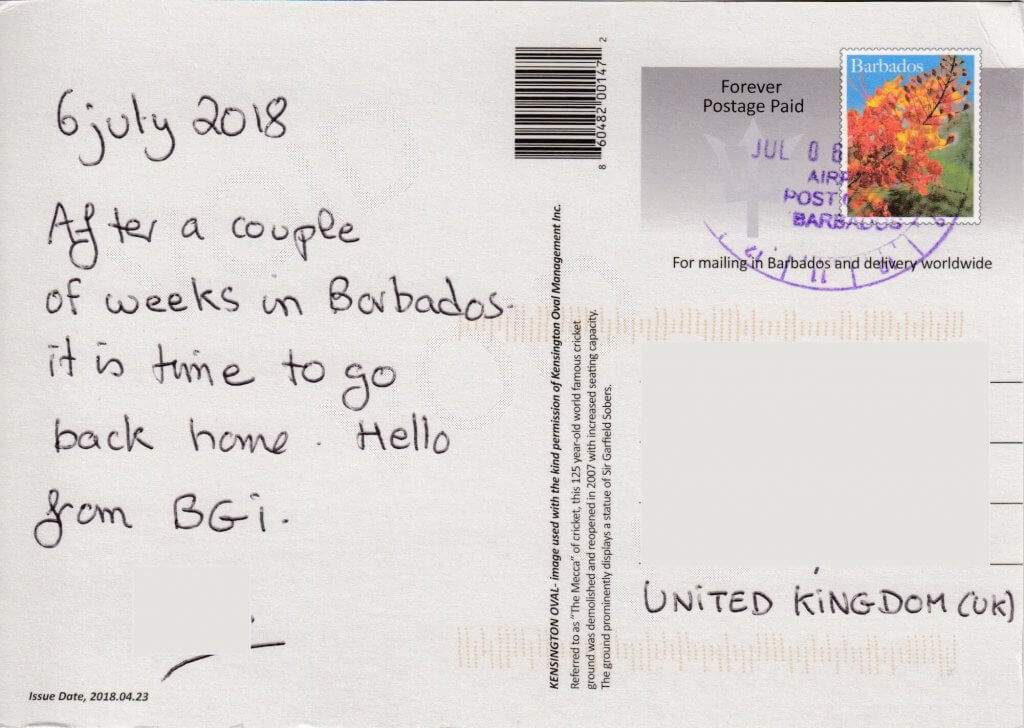 6 july 2018
After a couple
of weeks in Barbados.
it is time to go
back home. Hello
from BGi.
Issue Date, 2018.04.23
8 60482 00147 2
KENSINGTON OVAL- image used with the kind permission of Kensington Oval Management Inc.
Referred to as "The Mecca" of cricket, this 125 year-old world famous cricket
ground was demolished and reopened in 2007 with increased seating capacity.
The ground prominently displays a statue of Sir Garfield Sobers.
Forever
Postage Paid
Barbados
JUL 06
POST
BARBADOS
11
For mailing in Barbados and delivery worldwide
UNITED KINGDOM (UK)